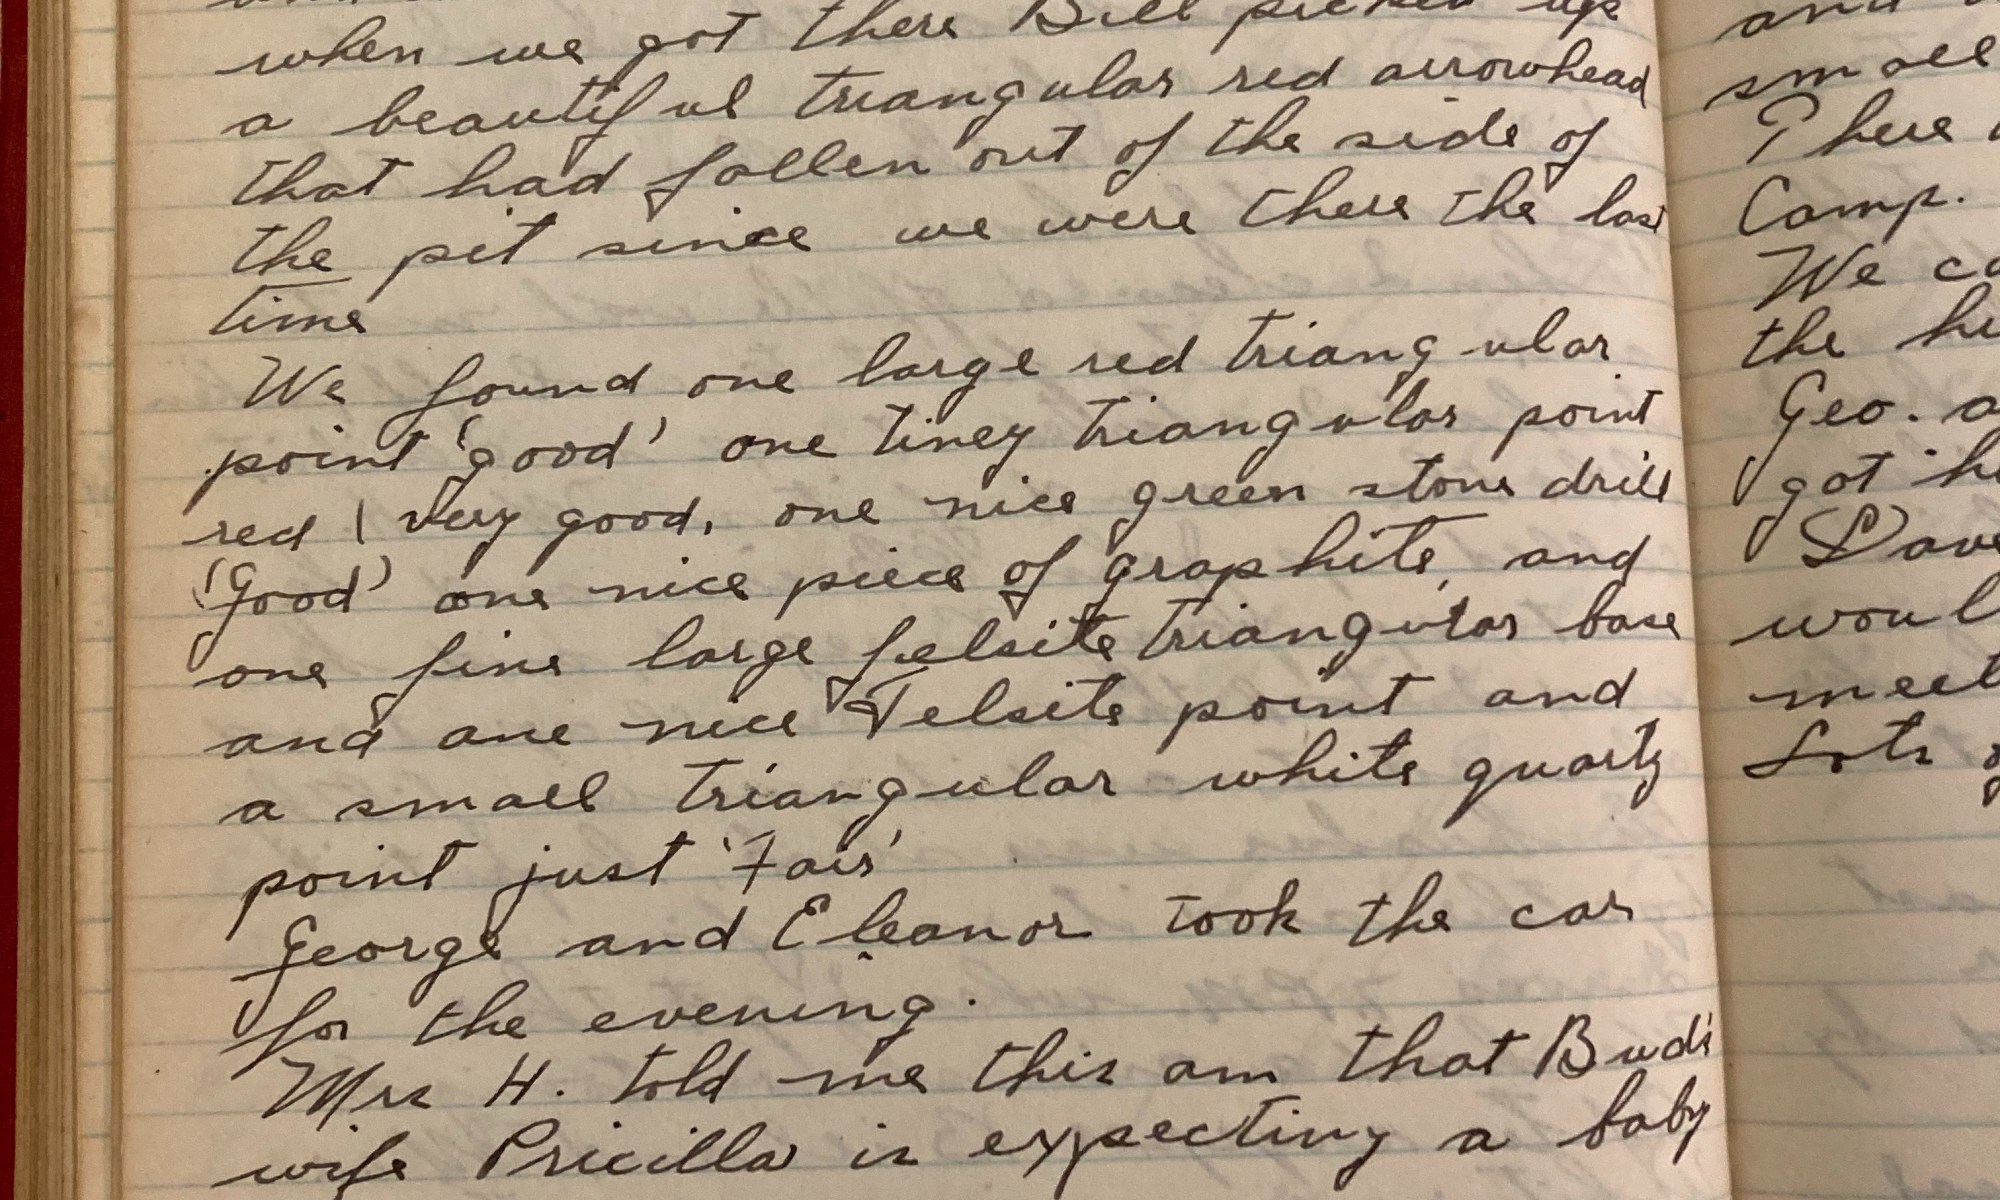 when we got there Bill picked up
a beautiful triangular red arrowhead
that had fallen out of the side of
the pit since we were there the last
time
We found one large red triangular
point 'good' one tiney triangular point
red ( very good, one nice green stone drill
'Good' one nice piece of graphite, and
one fine large felsite triangular base
and one nice Felsite point and
a small triangular white quartz
point just 'Fair'
George and Eleanor took the car
for the evening.
Mrs H. told me this am that Bud's
wife Pricilla is expecting a baby
and
small
There
Camp.
We
the
Geo.
got
Dave
meet
Lots